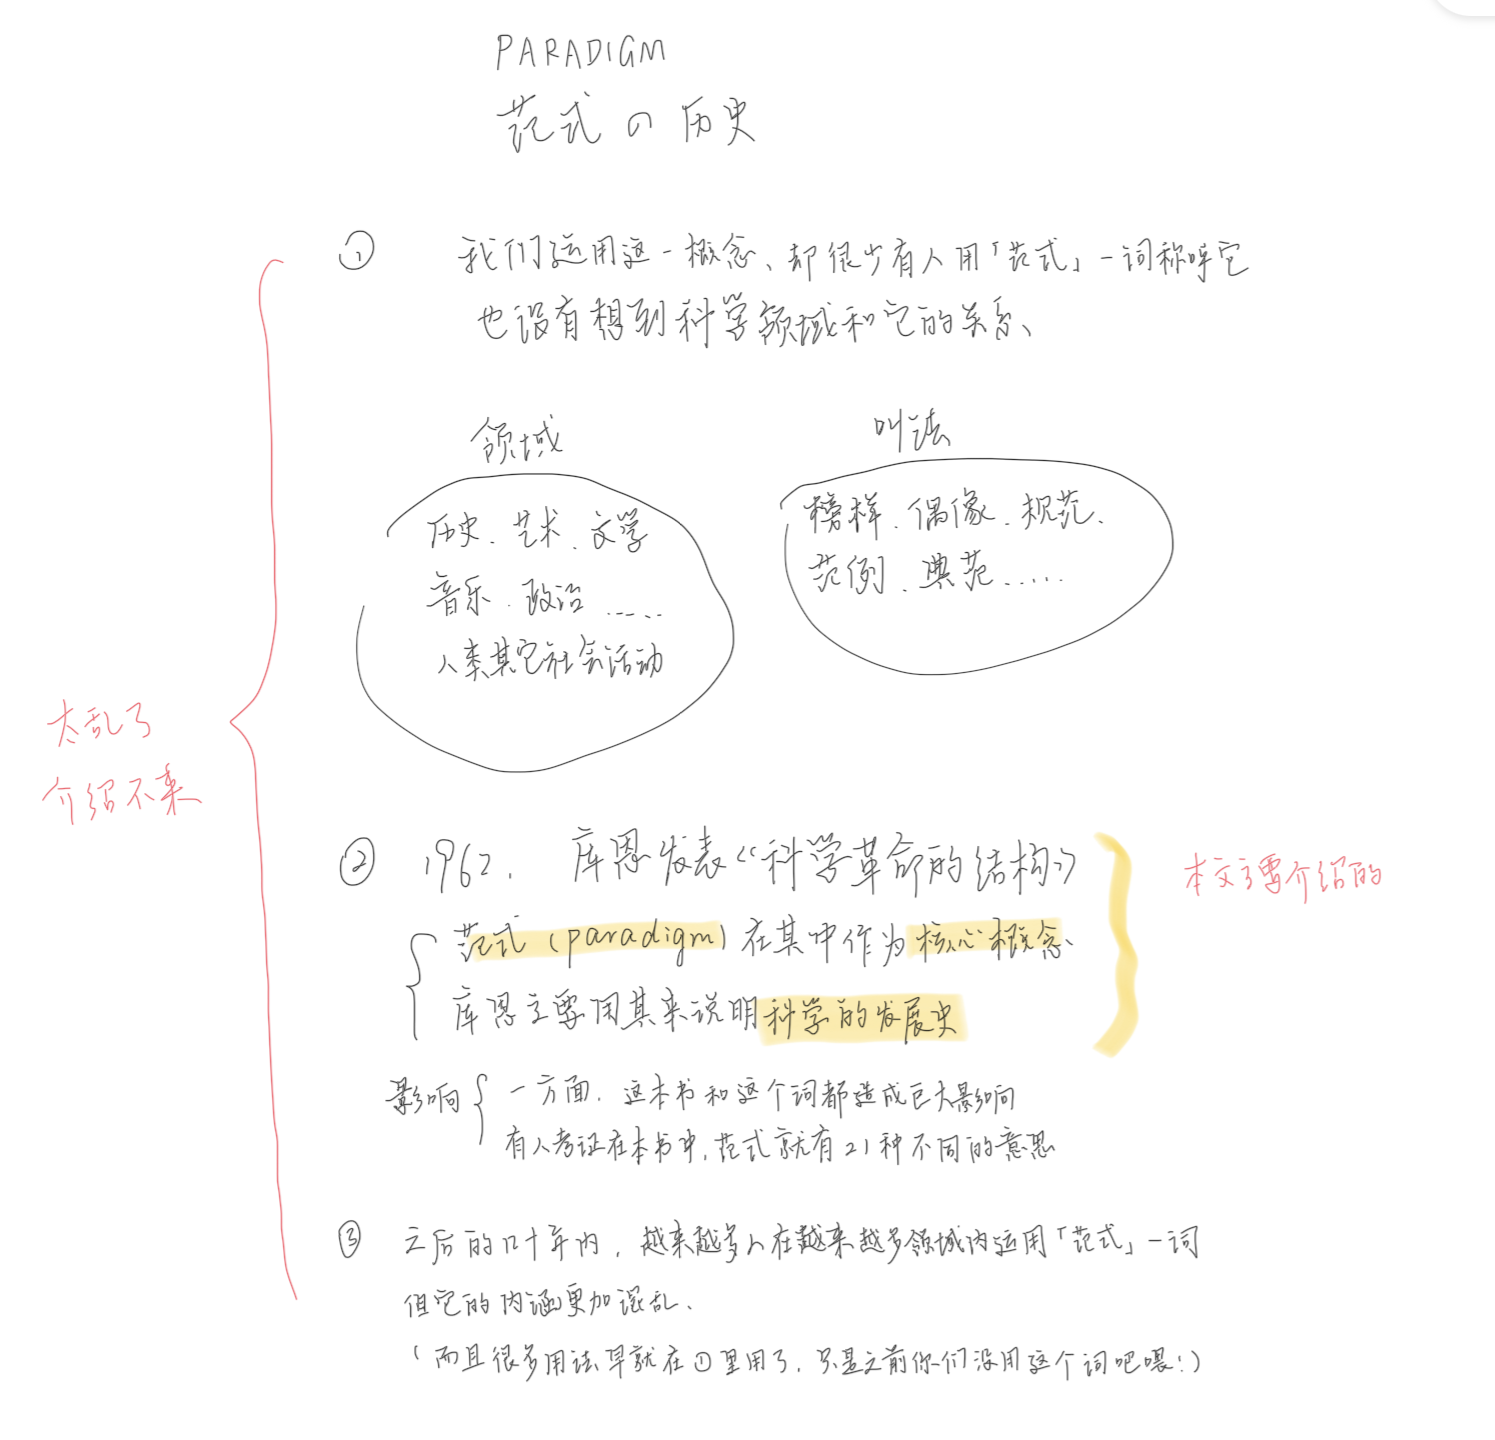 PARADIGM
范式の历史
① 我们运用这一概念、却很少有人用「范式」一词称呼它
也没有想到科学领域和它的关系、
领域
历史、艺术、文学
音乐、政治……
人类其它社会活动
叫法
榜样、偶像、规范、
范例、典范……
太乱了
介绍不来
② 1962. 库恩发表《科学革命的结构》
范式(paradigm)在其中作为核心概念、
库恩主要用其来说明科学的发展史
本文主要介绍的
影响
一方面、这本书和这个词都造成巨大影响
有人考证在本书中,范式就有21种不同的意思
③ 之后的几十年内,越来越多人在越来越多领域内运用「范式」一词
但它的内涵更加混乱、
(而且很多用法早就在①里用了、只是之前你们没用这个词吧喂!)